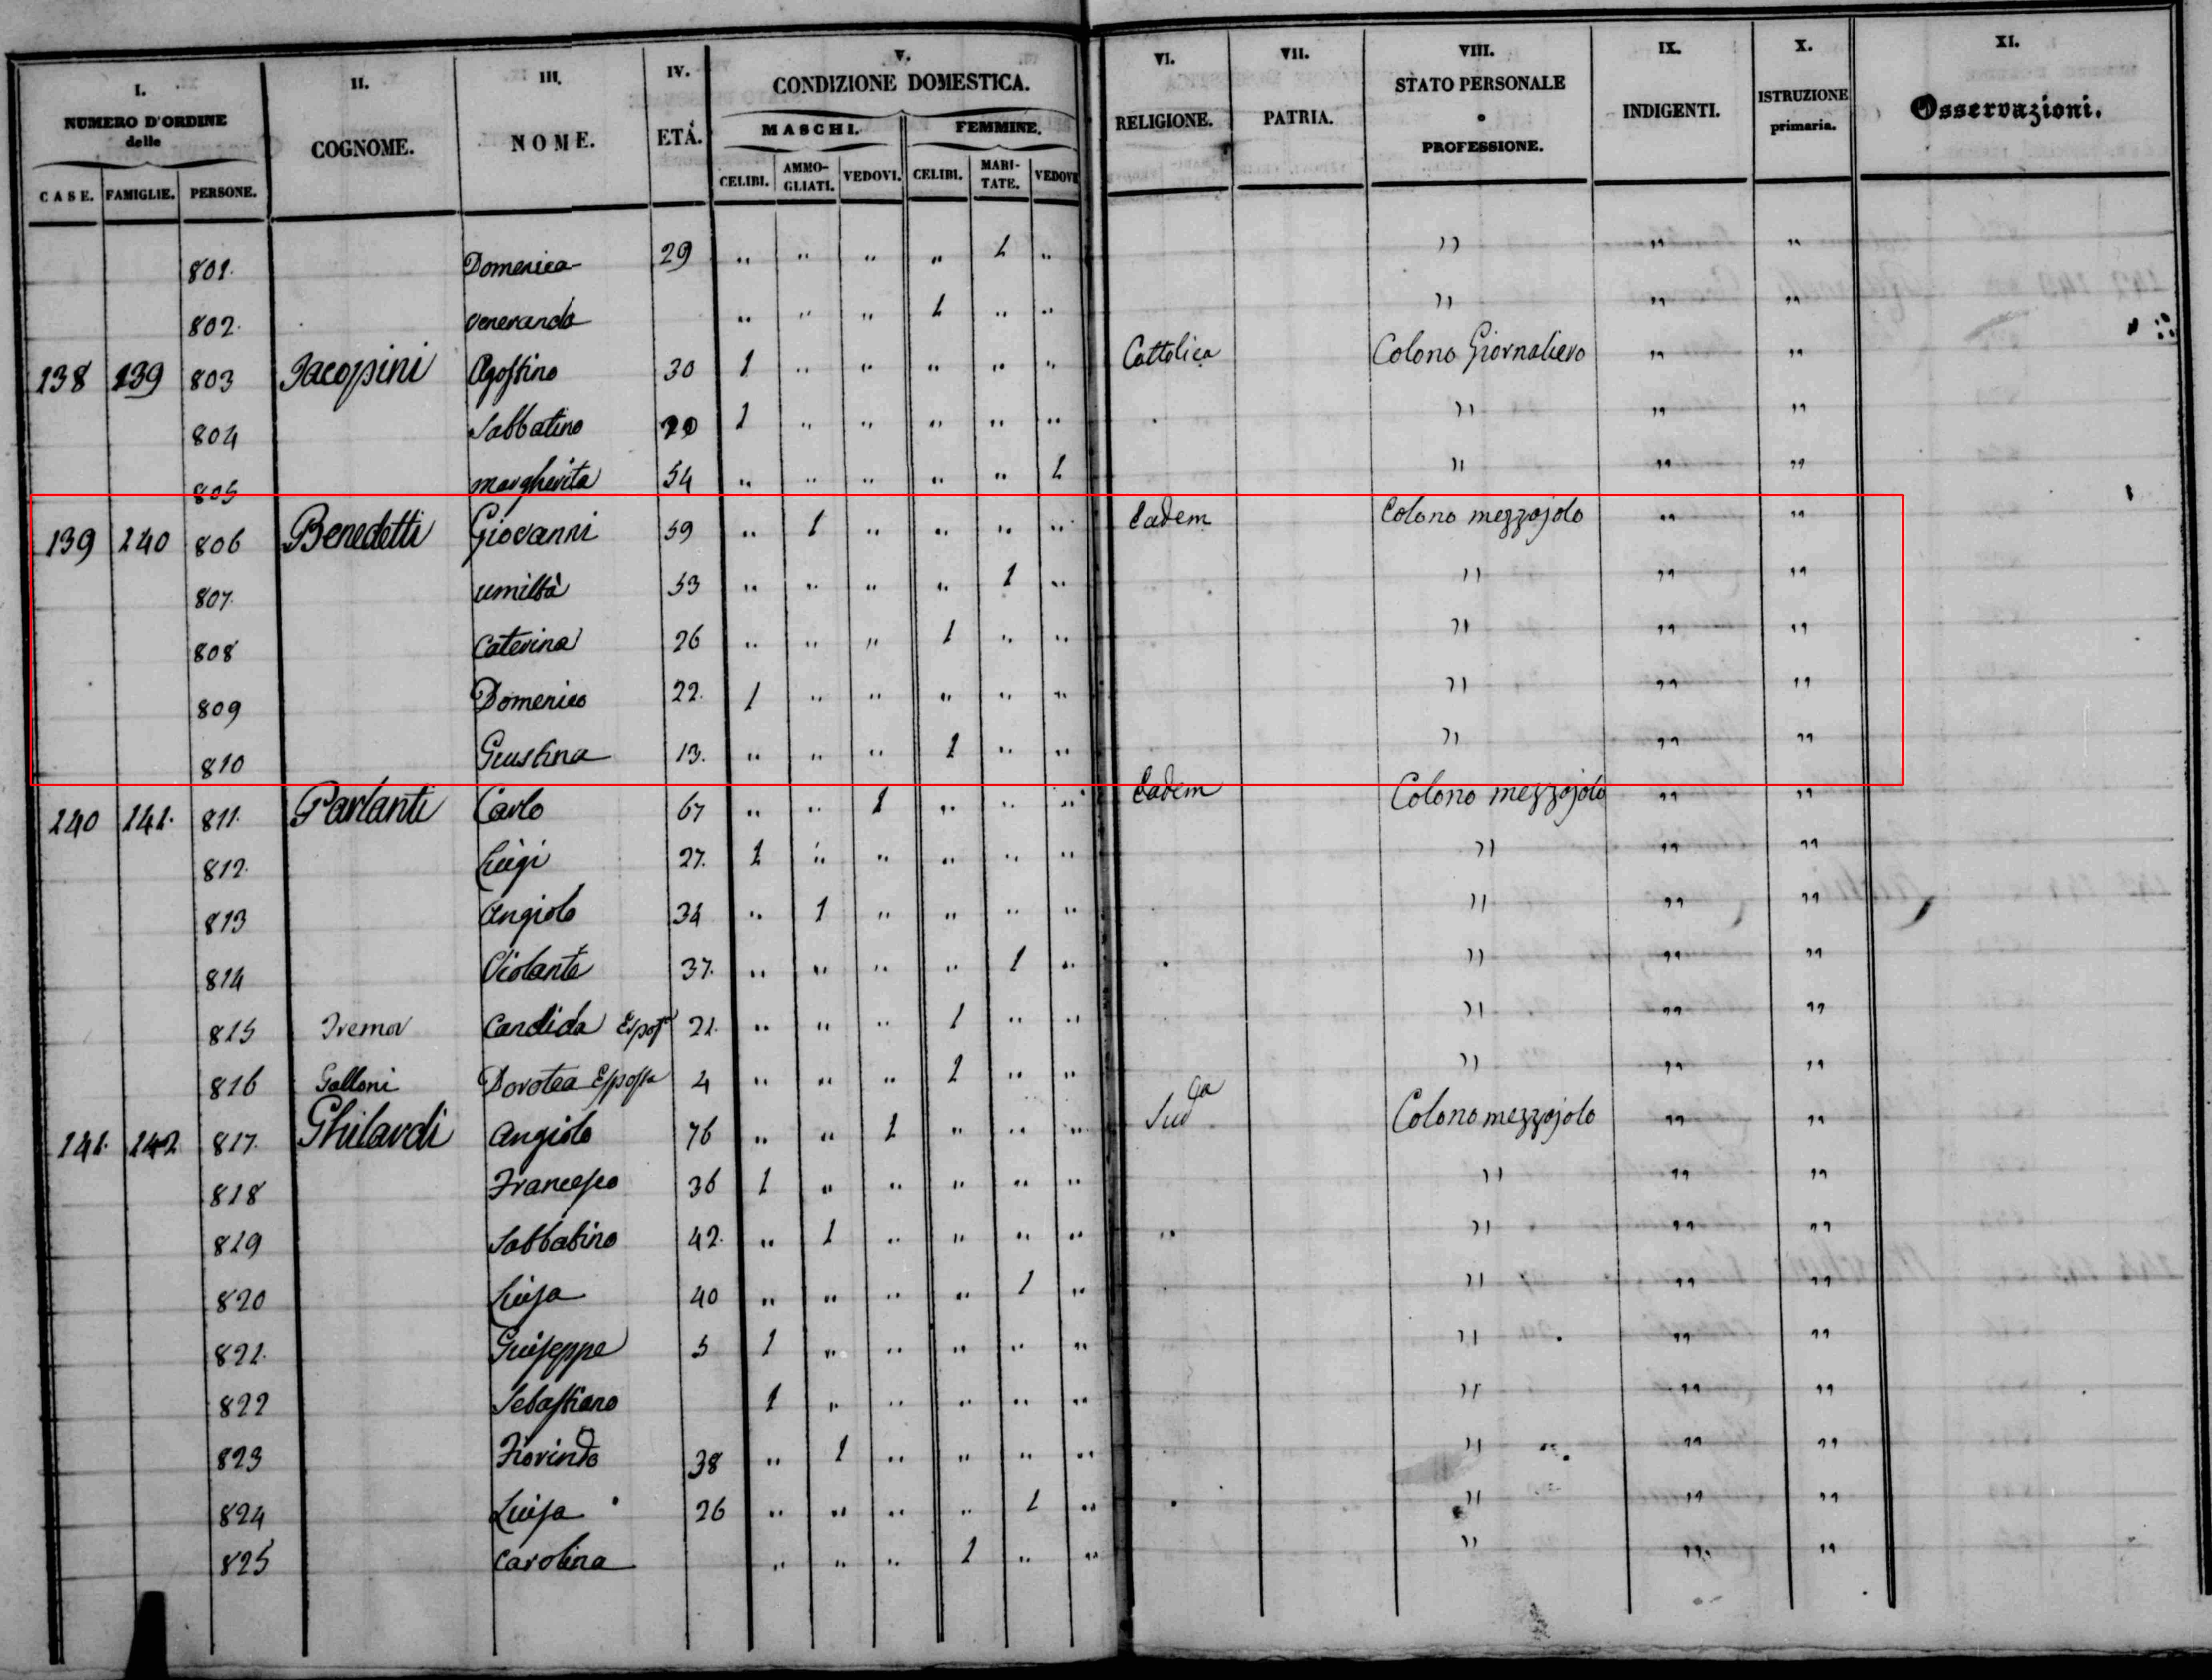 I. II. III. IV. V. VI. VII. VIII. IX. X. XI.
NUMERO D'ORDINE delle COGNOME. NOME. ETÁ. CONDIZIONE DOMESTICA. RELIGIONE. PATRIA. STATO PERSONALE o PROFESSIONE. INDIGENTI. ISTRUZIONE primaria. Osservazioni.
MASCHI. FEMMINE.
CASE. FAMIGLIE. PERSONE. CELIBI. AMMO-GLIATI. VEDOVI. CELIBI. MARI-TATE. VEDOVE
801. Domenica 29 " " " " 1 " " " "
802. Veneranda " " " 1 " " " " "
138 139 803 Jacopini Agostino 30 1 " " " " " Cattolica Colono Giornaliero " "
804 Sabbatino 1 " " " " " " " "
805 Margherita 54 " " " " " 1 " " "
139 140 806 Benedetti Giovanni 59 " 1 " " " " Eadem Colono mezzajolo " "
807. Umiltà 53 " " " " 1 " " " "
808 Caterina 26 " " " 1 " " " " "
809 Domenico 22. 1 " " " " " " " "
810 Giustina 13. " " " 1 " " " " "
140 141. 811. Parlanti Carlo 67 " " 1 " " " Eadem Colono mezzajolo " "
812. Luigi 27. 1 " " " " " " " "
813 Angiolo 34 " 1 " " " " " " "
814 Violante 37. " " " " 1 " " " "
815 Candida Espos 21. " " " 1 " " " " "
816 Galloni Dorotea Esposta 4 " " " 1 " " " " "
141. 142 817. Ghilardi Angiolo 76 " " 1 " " " Sudª Colono mezzajolo " "
818 Francesco 36 1 " " " " " " " "
819 Sabbatino 42. " 1 " " " " " " "
820 Luisa 40 " " " " 1 " " " "
821. Guiseppe 5 1 " " " " " " " "
822 Sebastiano 1 " " " " " " " "
823 Fiorindo 38 " 1 " " " " " " "
824 Luisa 26 " " " " 1 " " " "
825 Carolina " " " 1 " " " " "